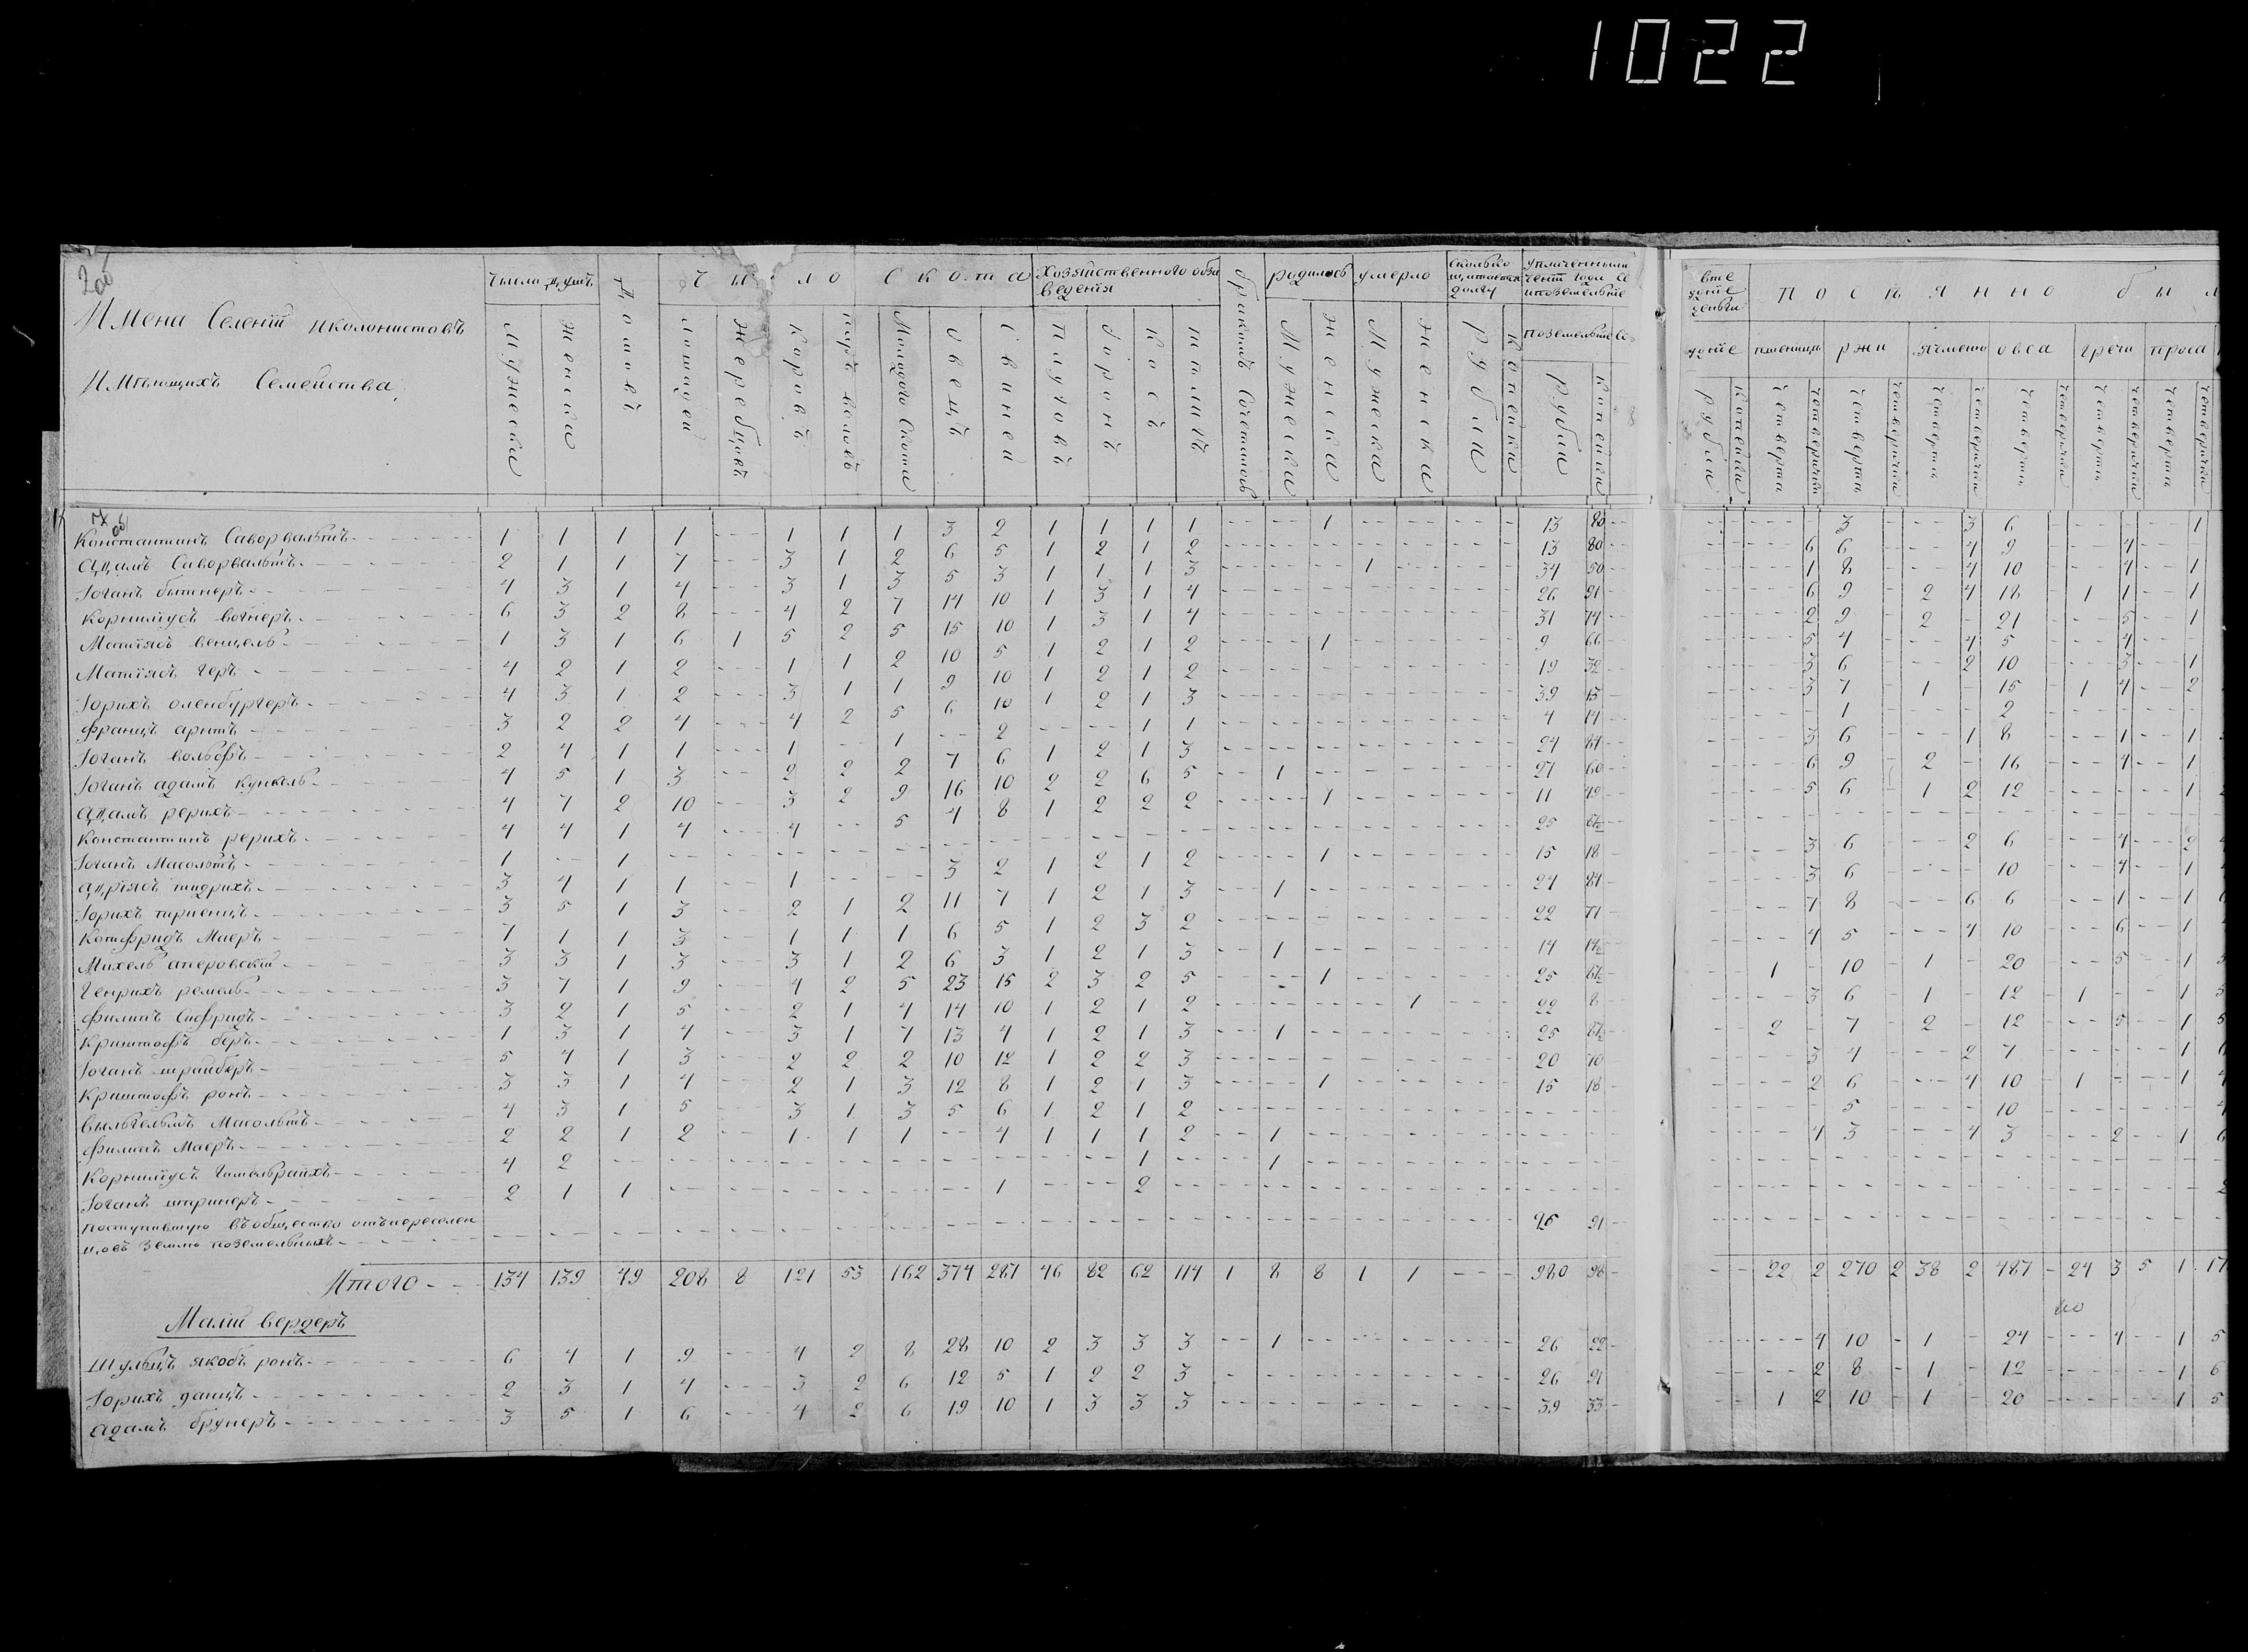 1022
2 об
Имена Селенiй и колонистовъ
Имѣющихъ Семейства,
Число душъ
Мужеска
Женска
Домовъ
Число Скота
лошадей
жеребцовъ
коровъ
паръ воловъ
Молодого Скота
овецъ
Свиней
Хозяйственного обза
веденiя
плуговъ
боронъ
косъ
браковъ Сочетанiй
родилось
Мужеска
женска
умерло
Мужеска
женска
Сколько
долгу
рубли
копейки
поземельные
рубли
копейки
деньги
рубли
копейки
Посѣянно был
пшеницы
ржи
ячменю
овса
гречи
проса
четверти
четверички
Константинъ Саворвальтъ 1 1 1 1 - 1 1 1 3 2 1 1 1 1 - - 1 - - - - 13 80 - - - - 3 - - 3 6 - - - - 1
Адамъ Саворвальтъ 2 1 1 7 - 3 1 2 6 5 1 2 1 2 - - - - - - - 13 80 - - - 6 6 - - 4 9 - - 4 - -
Іоганъ битнеръ 4 3 1 4 - 3 1 3 5 3 1 1 1 3 - - - 1 - - - 34 50 - - - 1 8 - - 4 10 - - 4 - 1
Корнилiусъ вагнеръ 6 3 2 8 - 4 2 7 14 10 1 3 1 4 - - - - - - - 26 91 - - - 6 9 - 2 4 18 - 1 1 - 1
Матiясъ венцель 1 3 1 6 1 5 2 5 15 10 1 3 1 4 - - - - - - - 31 74 - - - 2 9 - 2 - 21 - - 5 - 1
Матiясъ геръ 4 2 1 2 - 1 1 2 10 5 1 2 1 2 - - 1 - - - - 9 66 - - - 5 4 - - 4 5 - - 4 - -
Юрихъ оленбургеръ 4 3 1 2 - 3 1 1 9 10 1 2 1 2 - - - - - - - 19 32 - - - 3 6 - - 2 10 - - 3 - 1
францъ арнтъ 3 2 2 4 - 4 2 5 6 10 1 2 1 3 - - - - - - - 39 15 - - - 3 7 - 1 - 15 - 1 4 - 2
Іоганъ вольфъ 2 4 1 1 - 1 - 1 - 2 - - 1 1 - - - - - - - 4 14 - - - - 1 - - - 2 - - - - -
Іоганъ адамъ кункель 4 5 1 3 - 2 2 2 7 6 1 2 1 3 - - - - - - - 24 84 - - - 3 6 - - 1 8 - - 1 - 1
Адамъ рерихъ 4 7 2 10 - 3 2 9 16 10 2 2 6 5 - 1 - - - - - 27 60 - - - 6 9 - 2 - 16 - - 4 - 1
Константинъ рерихъ 4 4 1 4 - 4 - 5 4 8 1 2 2 2 - - 1 - - - - 11 49 - - - 5 6 - 1 2 12 - - - - 1
Іоганъ Масольтъ 1 - 1 - - - - - - - - - - - - - - - - - - 25
3 4 1 1 - 1 - - 3 2 1 2 1 2 - - 1 - - - - 15 18 - - - 3 6 - - 2 6 - - 4 - 2
3 5 1 3 - 2 1 2 11 7 1 2 1 3 - 1 - - - - - 24 84 - - - 3 6 - - - 10 - - 4 - 1
Готфридъ Маеръ 7 1 1 3 - 1 1 1 6 5 1 2 3 2 - - - - - - - 22 71 - - - 7 8 - - 6 6 - - 1 - 1
Михель 3 3 1 3 - 3 1 2 6 3 1 2 1 3 - 1 - - - - - 14 - - - 4 5 - - 4 10 - - 6 - 1
Генрихъ ремель 3 7 1 9 - 4 2 5 23 15 2 3 2 5 - - 1 - - - - 25 - - 1 - 10 - 1 - 20 - - 5 - 1
филипъ Сифридъ 3 2 1 5 - 2 1 4 14 10 1 2 1 2 - - - - 1 - - 22 8 - - - 3 6 - 1 - 12 - 1 - - 1
Криштофъ беръ 1 3 1 4 - 3 1 7 13 4 1 2 1 3 - 1 - - - - - 25 - - 2 - 7 - 2 - 12 - - 5 - 1
Іоганъ шрайберъ 5 4 1 3 - 2 2 2 10 12 1 2 2 3 - - - - - - - 20 70 - - - 3 4 - - 2 7 - - - - 1
Криштофъ ронъ 3 3 1 4 - 2 1 3 12 8 1 2 1 3 - - 1 - - - - 15 18 - - - 2 6 - - 4 10 - 1 - - 1
вильгельмъ Масольтъ 4 3 1 5 - 3 1 3 5 6 1 2 1 2 - - - - - - - - - - - - - 5 - - - 10 - - - - -
филипъ Маеръ 2 2 1 2 - 1 1 1 - 4 1 1 1 2 - 1 - - - - - - - - - - 4 3 - - 4 3 - - 2 - 1
Корнилiусъ Гимельрайхъ 4 2 - - - - - - - - - - 1 - - 1 - - - - -
Іоганъ штринеръ 2 1 1 - - - - - - 1 - - 2 - - - - - - - -
поступившую въ общество отъ переселен
цовъ Землю поземельныхъ - - - 26 91
Итого - 134 139 49 208 8 121 53 162 374 287 46 82 62 114 1 8 8 1 1 - - 980 98 - - 22 2 270 2 38 2 487 - 24 3 5 1 17
Малiй вердеръ
Шульцъ якобъ ронъ 6 4 1 9 - 4 2 8 28 10 2 3 3 3 - 1 - - - - - 26 22 - - - 4 10 - 1 - 24 - - 4 - 1 5
Юрихъ данцъ 2 3 1 4 - 3 2 6 12 5 1 2 2 3 - - - - - - - 26 91 - - - 2 8 - 1 - 12 - - - - 1 6
адамъ брунеръ 3 5 1 6 - 4 2 6 19 10 1 3 3 3 - - - - - - - 39 33 - - 1 2 10 - 1 - 20 - - - - 1 5